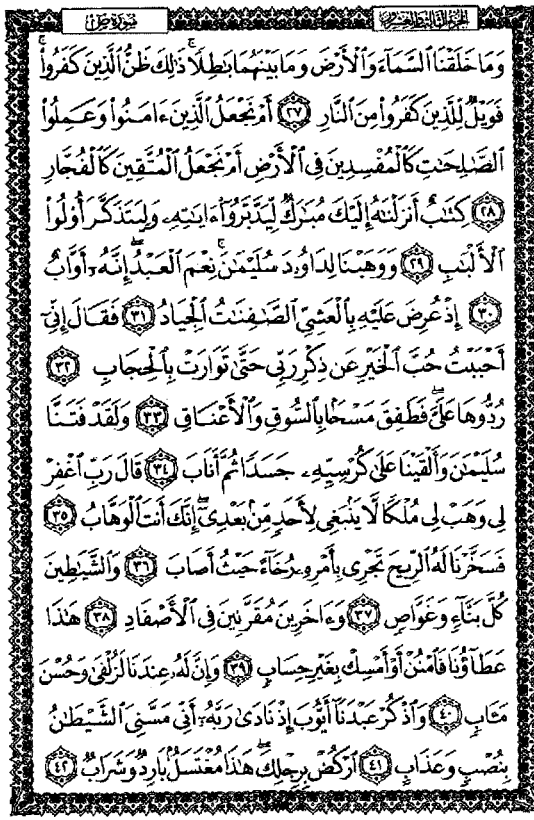 سُورَةُ صٓ
الجزء الثالث والعشرون
وَمَا خَلَقْنَا ٱلسَّمَآءَ وَٱلْأَرْضَ وَمَا بَيْنَهُمَا بَٰطِلًا ۚ ذَٰلِكَ ظَنُّ ٱلَّذِينَ كَفَرُوا۟ ۚ
فَوَيْلٌ لِّلَّذِينَ كَفَرُوا۟ مِنَ ٱلنَّارِ ٢٧ أَمْ نَجْعَلُ ٱلَّذِينَ ءَامَنُوا۟ وَعَمِلُوا۟
ٱلصَّٰلِحَٰتِ كَٱلْمُفْسِدِينَ فِى ٱلْأَرْضِ أَمْ نَجْعَلُ ٱلْمُتَّقِينَ كَٱلْفُجَّارِ
٢٨ كِتَٰبٌ أَنزَلْنَٰهُ إِلَيْكَ مُبَٰرَكٌ لِّيَدَّبَّرُوٓا۟ ءَايَٰتِهِۦ وَلِيَتَذَكَّرَ أُو۟لُوا۟
ٱلْأَلْبَٰبِ ٢٩ وَوَهَبْنَا لِدَاوُۥدَ سُلَيْمَٰنَ ۚ نِعْمَ ٱلْعَبْدُ ۖ إِنَّهُۥٓ أَوَّابٌ
٣٠ إِذْ عُرِضَ عَلَيْهِ بِٱلْعَشِىِّ ٱلصَّٰفِنَٰتُ ٱلْجِيَادُ ٣١ فَقَالَ إِنِّىٓ
أَحْبَبْتُ حُبَّ ٱلْخَيْرِ عَن ذِكْرِ رَبِّى حَتَّىٰ تَوَارَتْ بِٱلْحِجَابِ ٣٢
رُدُّوهَا عَلَىَّ ۖ فَطَفِقَ مَسْحًۢا بِٱلسُّوقِ وَٱلْأَعْنَاقِ ٣٣ وَلَقَدْ فَتَنَّا
سُلَيْمَٰنَ وَأَلْقَيْنَا عَلَىٰ كُرْسِيِّهِۦ جَسَدًا ثُمَّ أَنَابَ ٣٤ قَالَ رَبِّ ٱغْفِرْ
لِى وَهَبْ لِى مُلْكًا لَّا يَنۢبَغِى لِأَحَدٍ مِّنۢ بَعْدِىٓ ۖ إِنَّكَ أَنتَ ٱلْوَهَّابُ ٣٥
فَسَخَّرْنَا لَهُ ٱلرِّيحَ تَجْرِى بِأَمْرِهِۦ رُخَآءً حَيْثُ أَصَابَ ٣٦ وَٱلشَّيَٰطِينَ
كُلَّ بَنَّآءٍ وَغَوَّاصٍ ٣٧ وَءَاخَرِينَ مُقَرَّنِينَ فِى ٱلْأَصْفَادِ ٣٨ هَٰذَا
عَطَآؤُنَا فَٱمْنُنْ أَوْ أَمْسِكْ بِغَيْرِ حِسَابٍ ٣٩ وَإِنَّ لَهُۥ عِندَنَا لَزُلْفَىٰ وَحُسْنَ
مَـَٔابٍ ٤٠ وَٱذْكُرْ عَبْدَنَآ أَيُّوبَ إِذْ نَادَىٰ رَبَّهُۥٓ أَنِّى مَسَّنِىَ ٱلشَّيْطَٰنُ
بِنُصْبٍ وَعَذَابٍ ٤١ ٱرْكُضْ بِرِجْلِكَ ۖ هَٰذَا مُغْتَسَلٌۢ بَارِدٌ وَشَرَابٌ ٤٢